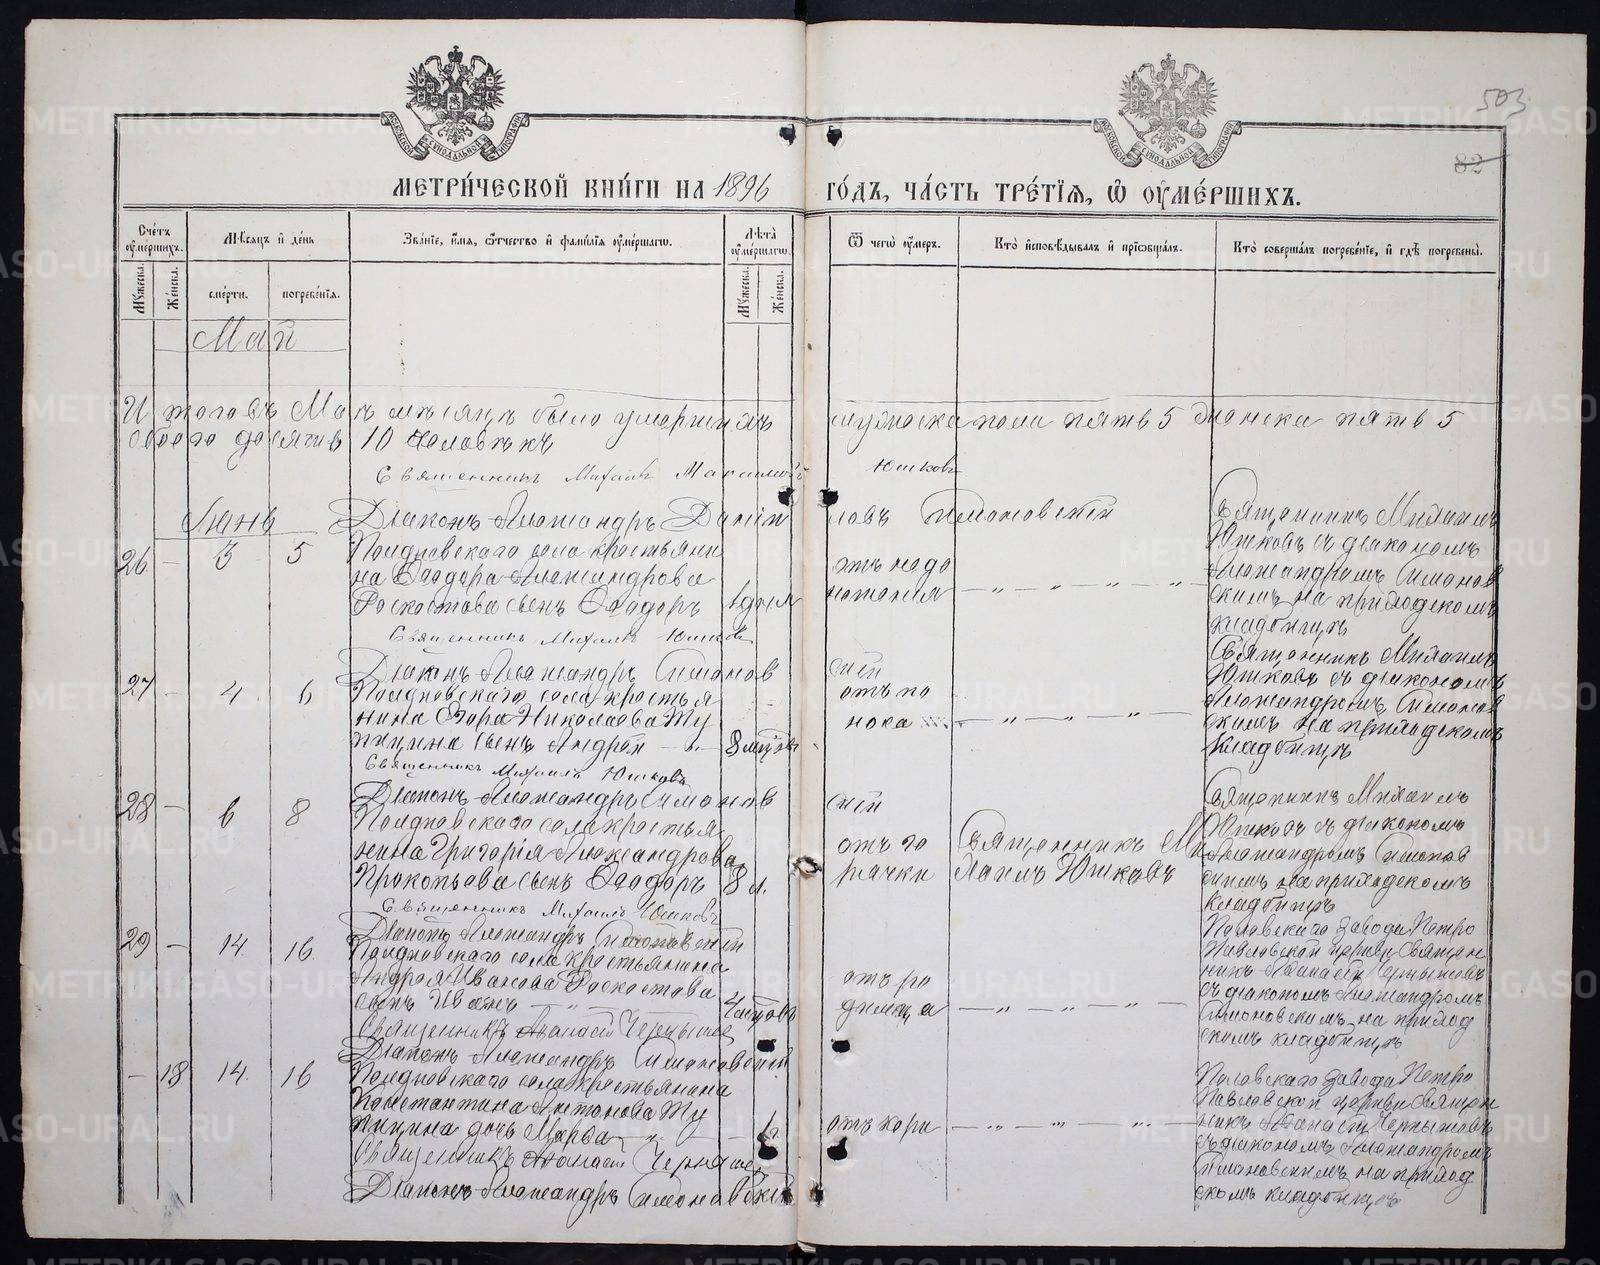 503
82
МЕТРИ́ЧЕСКОЙ КНИ́ГИ НА 1896 ГО́ДЪ, ЧА́СТЬ ТРЕ́ТІѦ, Ѡ ОУМЕ́РШИХЪ.
Сче́тъ оуме́ршихъ.
Мѣ́сѧцъ и҆ де́нь
Зва́ніе, и҆́мѧ, ѻ҆́тчество и҆ фами́лїѧ оуме́ршагѡ.
Лѣ́та оуме́ршагѡ.
Ѿ чегѡ̀ оу҆́меръ.
Кто̀ и҆сповѣ́дывалъ и҆ прїѡбща́лъ.
Кто̀ соверша́лъ погребе́нїе, и҆ гдѣ̀ погребены̀.
Мꙋ́жеска.
Же́нска.
сме́рти.
погребе́нїѧ.
Мꙋ́жеска.
Же́нска.
Май
Итого въ Маѣ мѣсяцѣ было умершихъ мужеска пола пять 5 женска пять 5
обоего десять 10 человѣкъ
Священникъ Михаилъ Юшковъ
Діаконъ Александръ Симановскій
Іюнь
26 — 3 5
Полдневскаго села крестьяни
на Ѳеодора Александрова
сынъ Ѳеодоръ
отъ недо
ношенія
Священникъ Михаилъ
Юшковъ съ діакономъ
Александромъ Симанов
скимъ на приходскомъ
кладбищѣ
Священникъ Михаилъ Юшковъ
Діаконъ Александръ Симановскій
27 — 4 6
Полдневскаго села крестья
нина Егора Николаева Жу
сынъ Андрей
8 мѣсяц.
отъ по
носа
Священникъ Михаилъ
Юшковъ съ діакономъ
Александромъ Симанов
скимъ на приходскомъ
кладбищѣ
Священникъ Михаилъ Юшковъ
Діаконъ Александръ Симановскій
28 — 6 8
Полдневскаго села крестья
нина Григорія Александрова
Прокопьева сынъ Ѳеодоръ 8 л.
отъ го
рячки
Священникъ Ми
хаилъ Юшковъ
Священникъ Михаилъ
Юшковъ съ діакономъ
Александромъ Симанов
скимъ на приходскомъ
кладбищѣ
Священникъ Михаилъ Юшковъ
Діаконъ Александръ Симановскій
29 — 14 16
Полдневскаго села крестьянина
Андрея Иванова
сынъ Иванъ
отъ ро
димца
Полевскаго завода Петро
Павловской церкви Священ
никъ Аѳанасій Чернышевъ
съ діакономъ Александромъ
Симановскимъ на приход
скомъ кладбищѣ
Священникъ Аѳанасій Чернышевъ
Діаконъ Александръ Симановскій
— 18 14 16
Полдневскаго села крестьянина
Константина Антонова Жу
дочь Марѳа
отъ кори
Полевскаго завода Петро
Павловской церкви Священ
никъ Аѳанасій Чернышевъ
съ діакономъ Александромъ
Симановскимъ на приход
скомъ кладбищѣ
Священникъ Аѳанасій Чернышевъ
Діаконъ Александръ Симановскій
METRIKI.GASO-URAL.RU